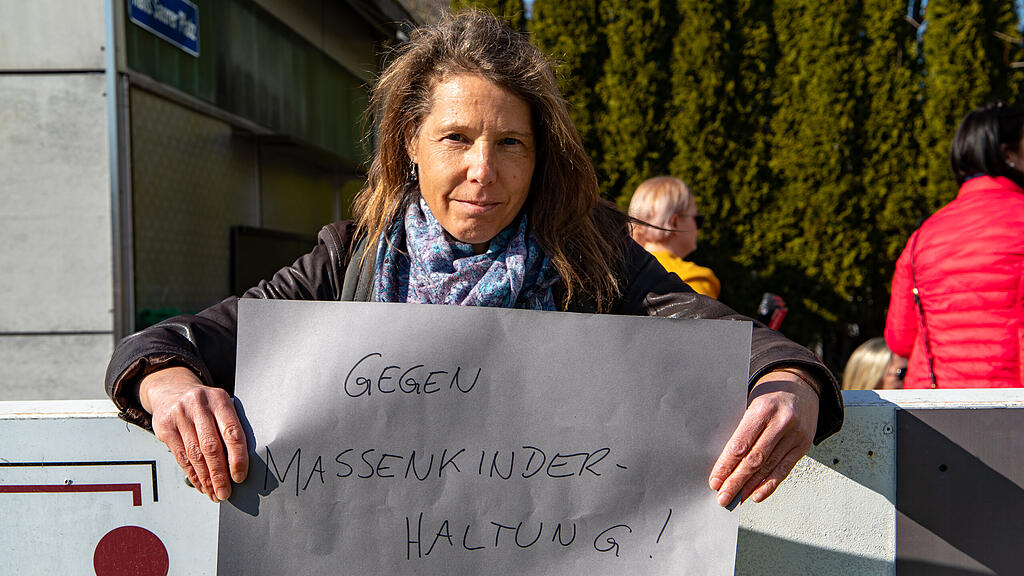 GEGEN
MASSENKINDER-
HALTUNG!